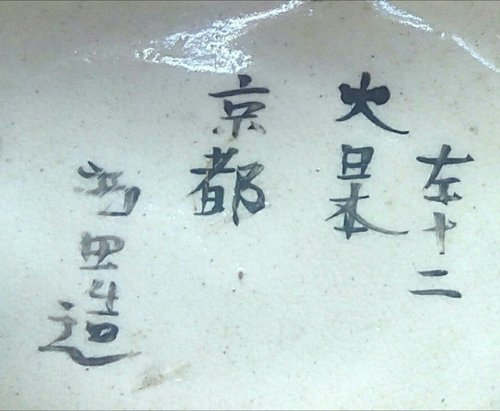 左十二
大日本
京都
造